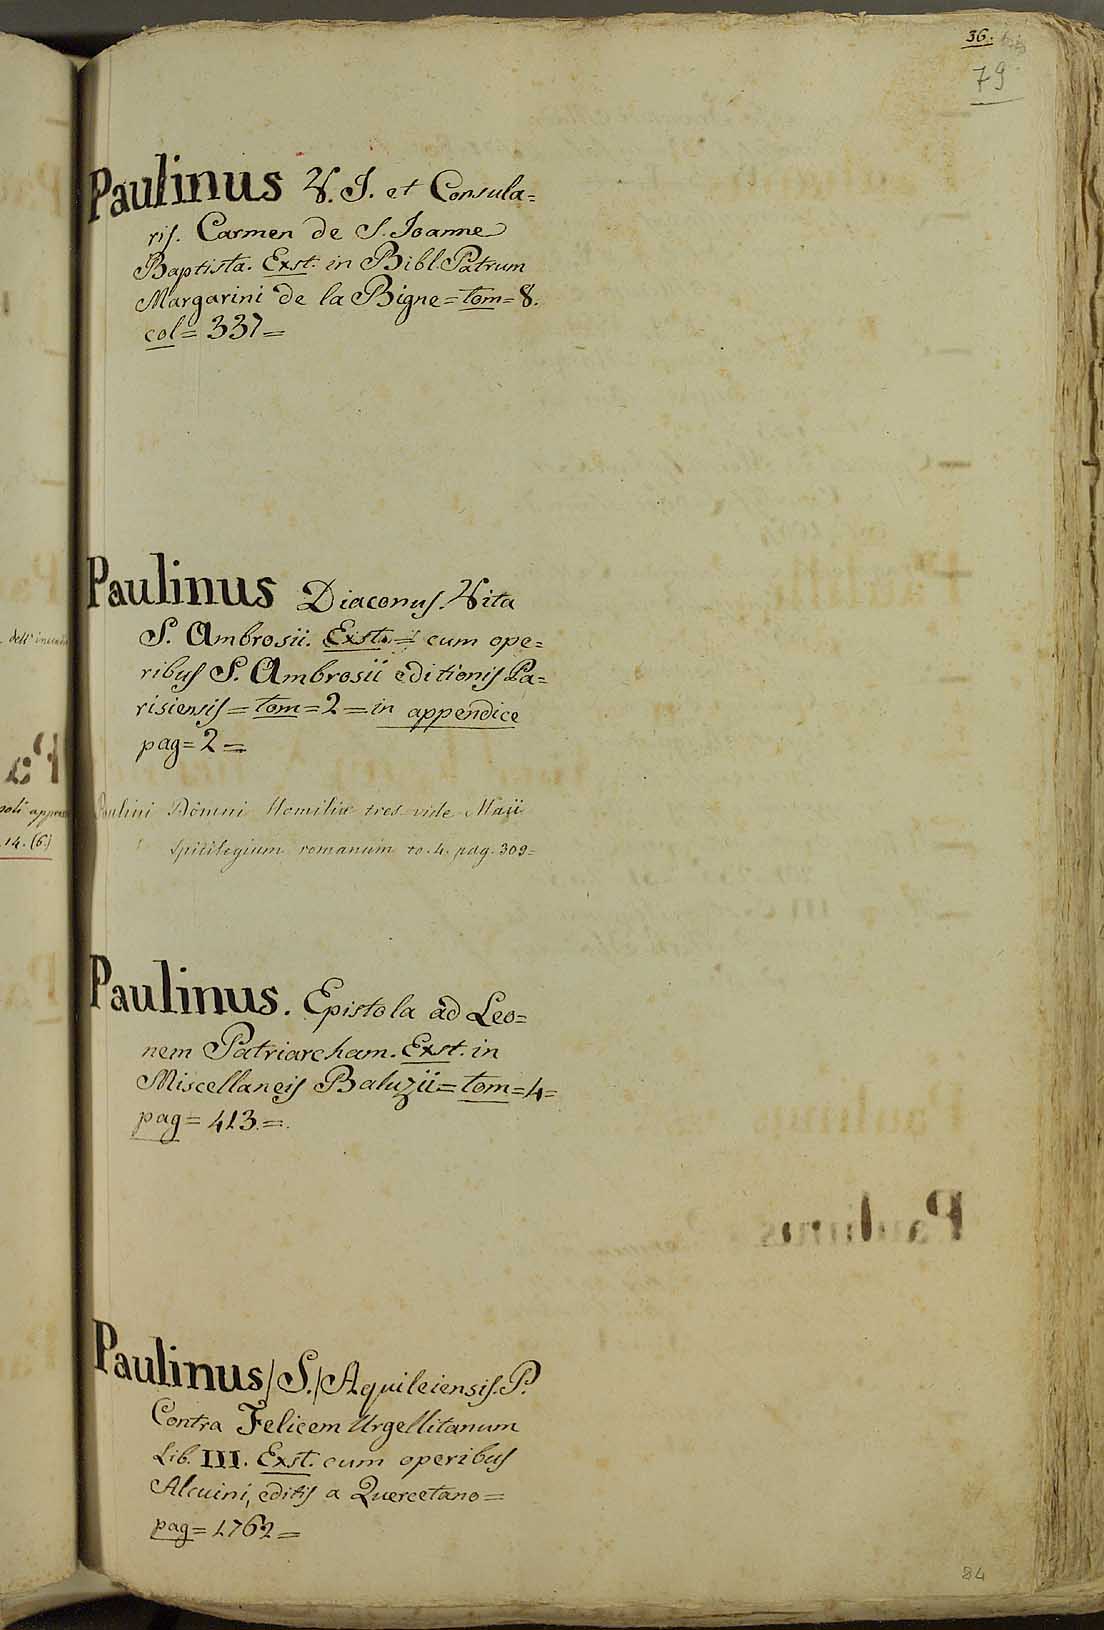 36.
79
Paulinus V. I. et Consula=
ris. Carmen de S. Joanne
Baptista. Exst. in Bibl. Patrum
Margarini de la Bigne = tom = 8.
col = 337 =
Paulinus Diaconus. Vita
S. Ambrosii. Exst. = cum ope=
ribus S. Ambrosii editionis Pa=
risiensis = tom = 2 = in appendice
pag = 2 =
Paulini Domni Homiliæ tres vide Maii
Spicilegium romanum to. 4. pag. 309=
Paulinus. Epistola ad Leo=
nem Patriarcham. Exst. in
Miscellaneis Baluzii = tom = 4=
pag = 413. =.
Paulinus /S./ Aquileiensis. P.
Contra Felicem Urgellitanum
Lib. III. Exst. cum operibus
Alcuini, editis a Quercetano =
pag = 1762 =
84
dell'
14. (6.)